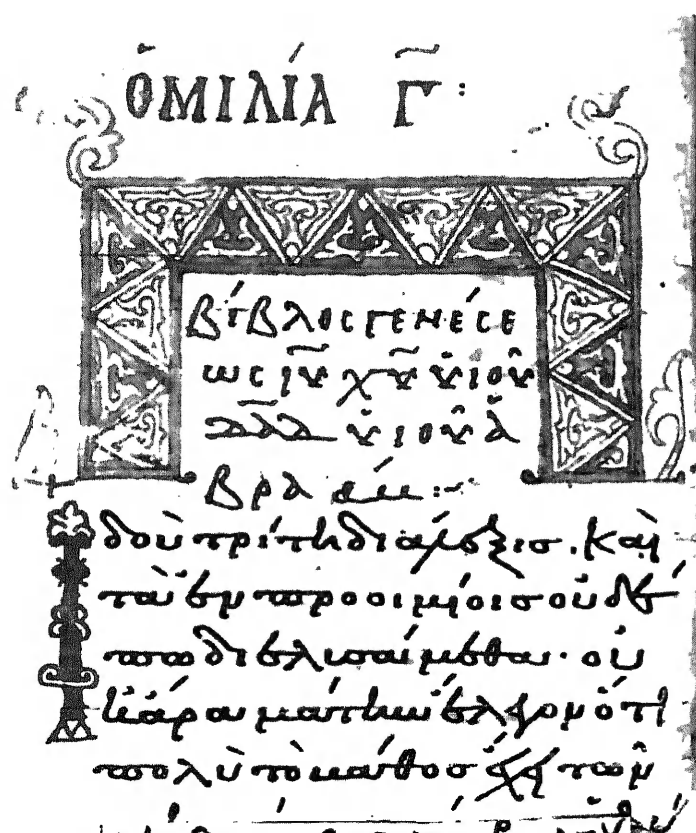 ὉΜΙΛΊΑ Γ̅:
Βίβλος γενέσε
ως ι̅υ̅ χ̅υ̅ υἱοῦ
δ̅α̅δ̅ υἱοῦ ἀ
βραάμ:~
Ἰδοὺ τρίτη διάλεξις. καὶ
τὰ ἐν προοιμίοις οὐδέ
πω διελυσάμεθα· οὐ
κ ἄρα μάτην ἔλεγον ὅτι
πολὺ τὸ βάθος ἔχει τῶν